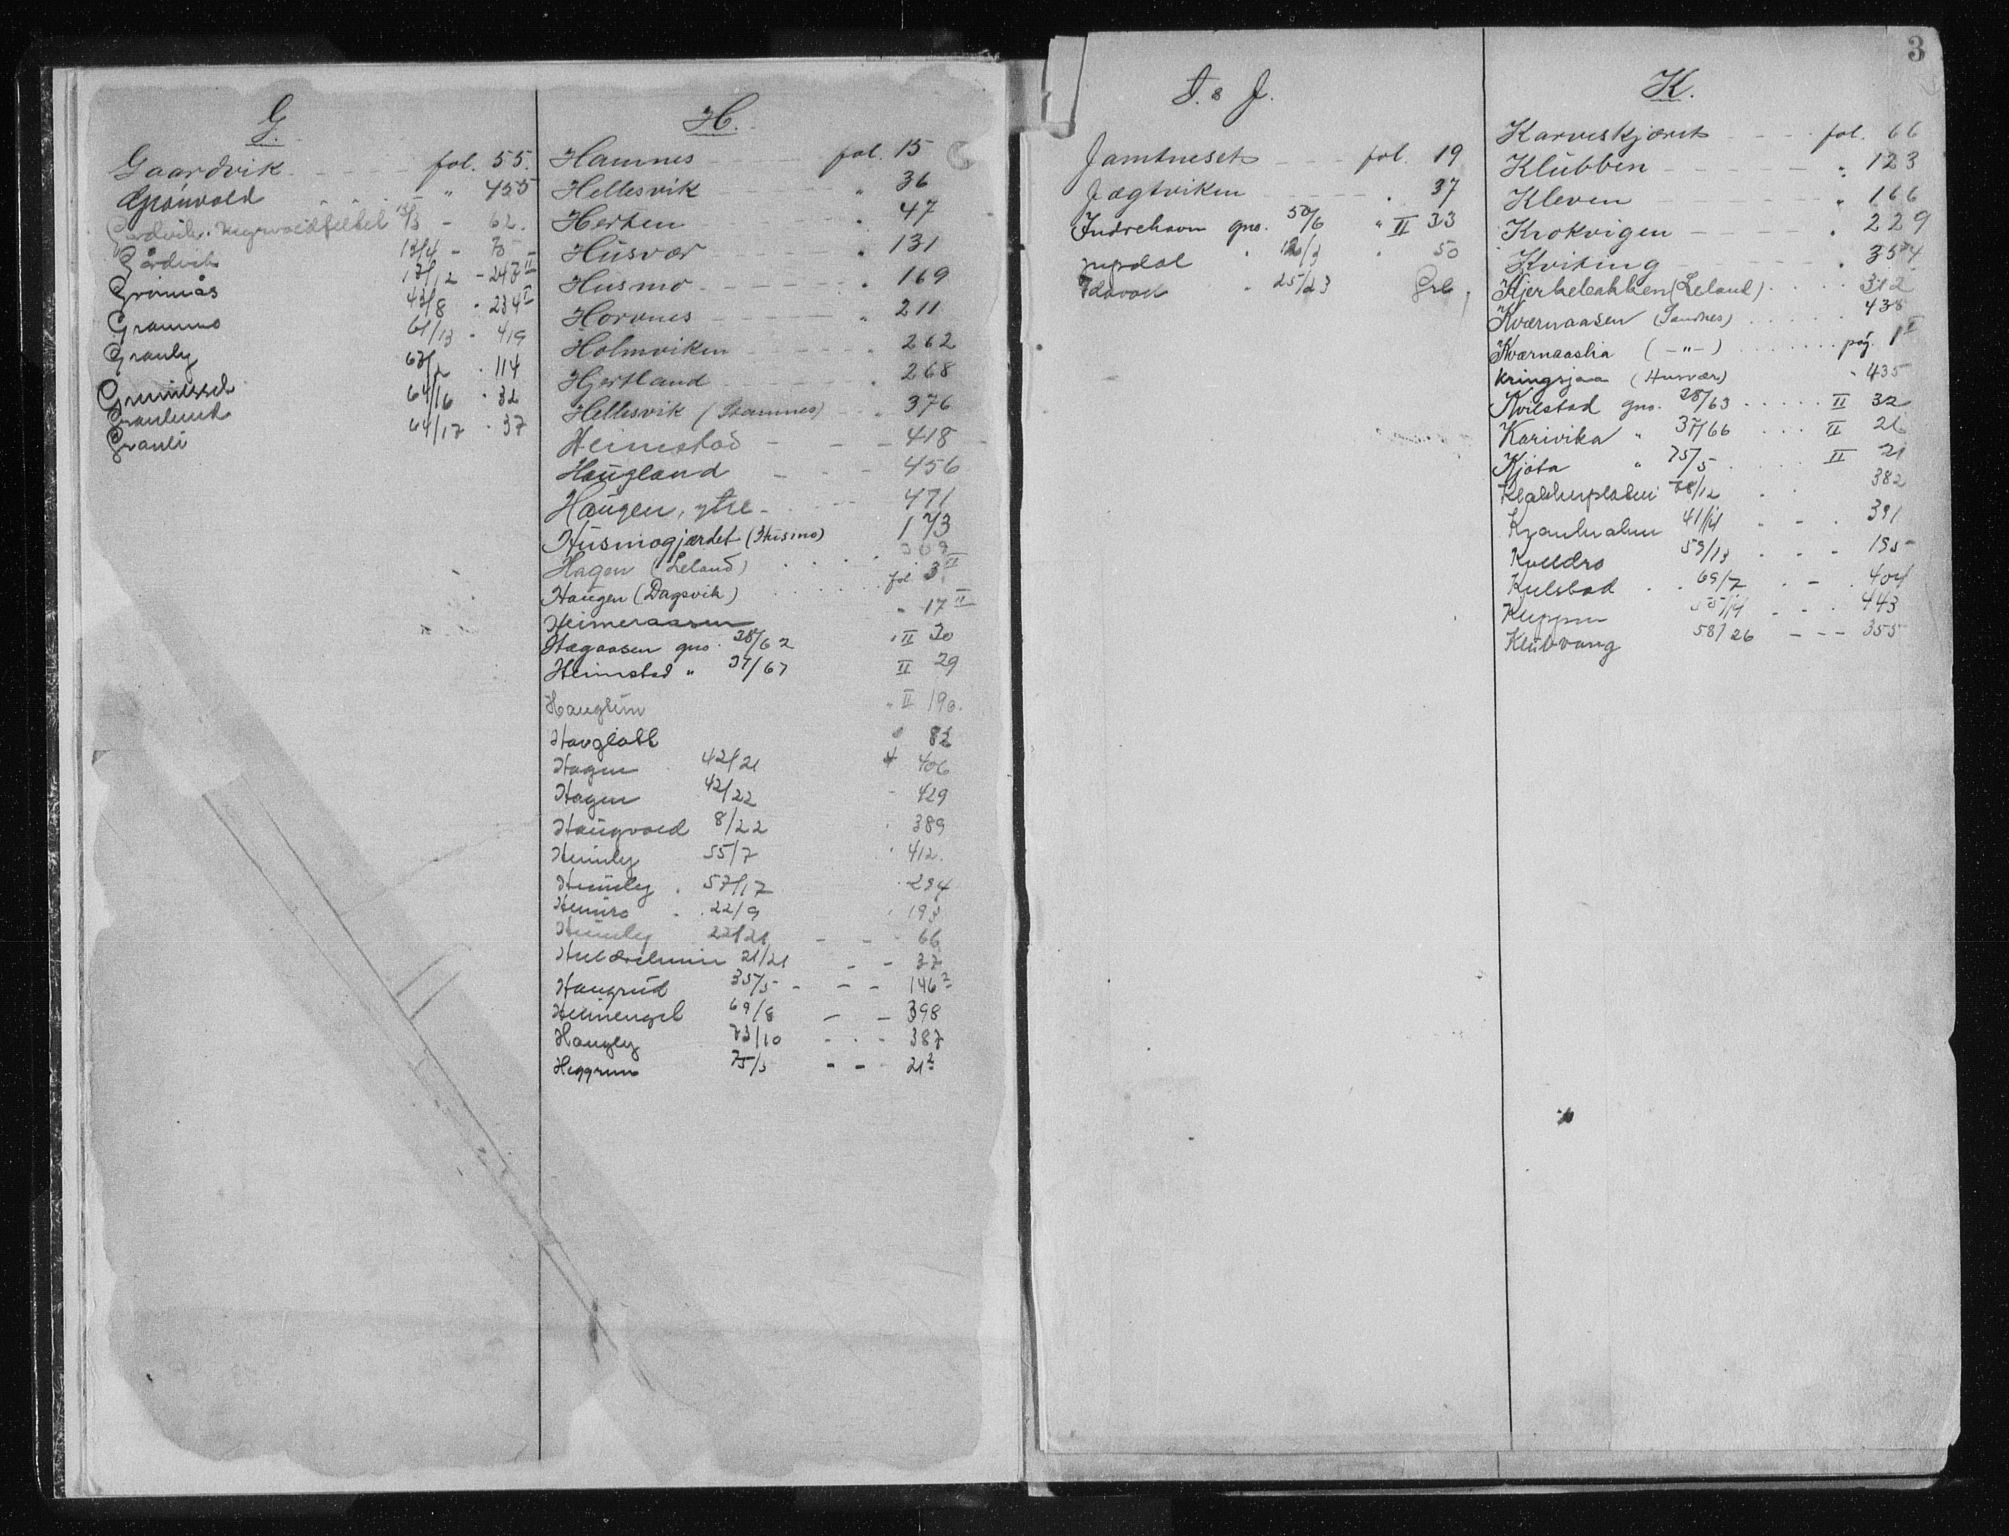 G.
Gaardvik fol. 55.
Grönvold " 455
62.
Gårdvik 13/4 - 75
Granås 17/12 - 247 II
Grammo 42/8 - 234 I
Granly 61/13 - 419
63/2 - 114
Granlund 64/16 - 32
Granli 64/17 - 37
H.
Hamnes fol. 15
Hellesvik " 36
Herten " 47
Husvær " 131
Husmo " 169
Horvnes " 211
Holmviken 262
Hjertland " 268
Hellesvik (Stamnes) " 376
Heimstad - - - 418
Haugland - - - 456
Haugen, ytre - 471
Husmogjærdet (Husmo) 173
Hagen (Leland) 309
Haugen (Dagsvik) fol 3 II
Heimeraasen " 17 II
Hægaasen gno. 38/62 " II 30
Heimstad " 37/67 II 29
Haugtun " II 190.
Haugloll 82
Hagen 42/21 " 406
Hagen 42/22 - 429
Haugvold 8/22 389
Heimly 55/7 412.
Heimly 57/17 294
Heimro 22/9 193
Heimly 22/21 - - 66
21/21 - - 37
Haugrud 35/5 - - - 146²
Heimenget 69/8 - - 398
Haugly 73/10 - - - 387
Heggrum 75/3 - - 21²
I. & J.
Jamtneset fol. 19
Jægtviken " 37
Indrehavn gno. 50/6 " II 33
Jupdal " 120/3 " 50
Idavoll " 25/23
3
K.
Karveskjæret fol. 66
Klubben " 123
Kleven " 166
Krokvigen " 229
Kviting " 354
Kjerkebakken (Leland) 312
Kværnaasen (Sandnes) 438
Kværnaaslia ( - " - ) pag. 1 II
Kringsjaa (Husvær) " 435
Kvilstad gno. 38/63 II 32
Karivika " 37/66 II 26
Kjøta " 75/5 II 21
78/12 382
41/14 - - 391
Kveldro 59/13 - - - 195
Kulstad 69/7 - - 404
Kleppen 55/14 - - - 443
Klubvang 58/26 - - - 355